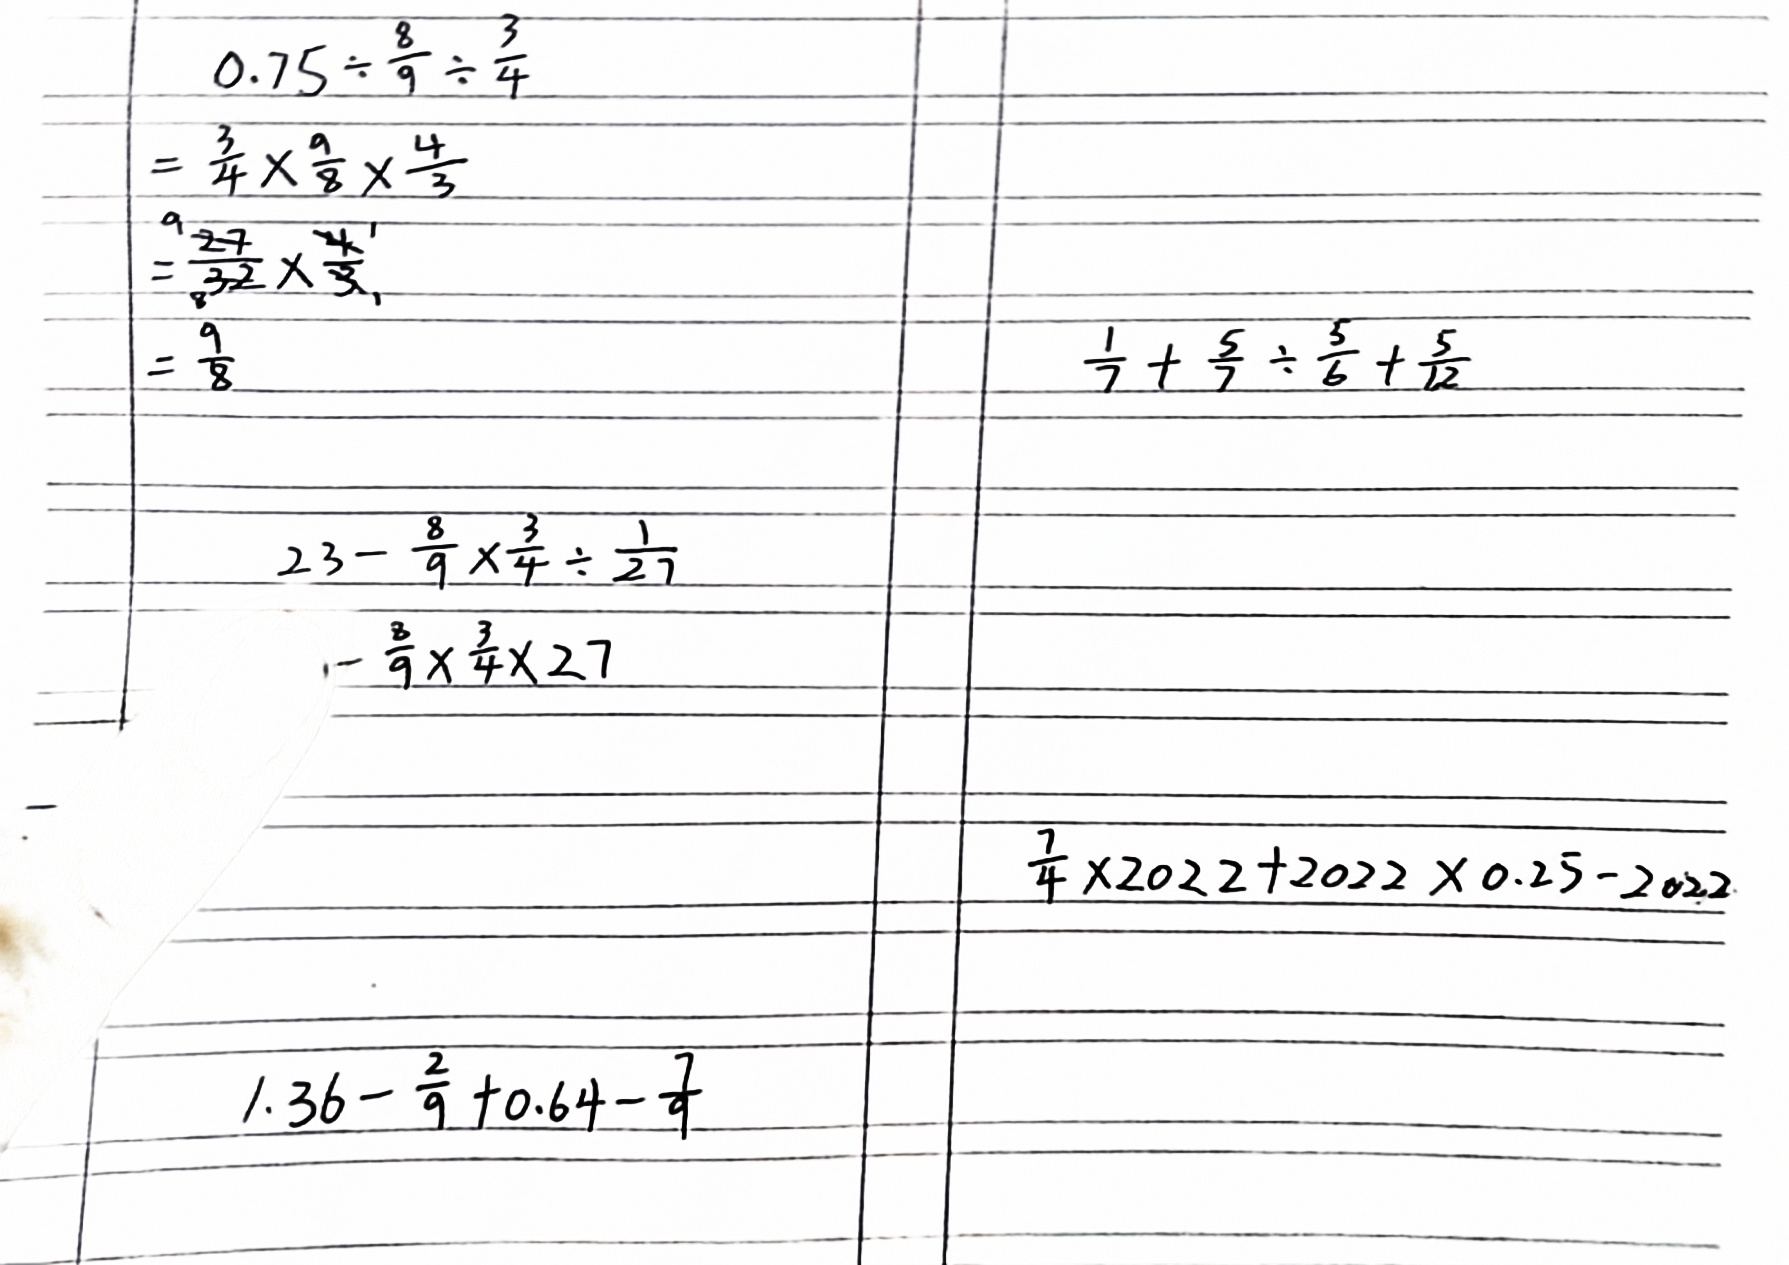 0.75 ÷ 8/9 ÷ 3/4
= 3/4 × 9/8 × 4/3
= 27/32 × 4/3
9 1
8 1
= 9/8
23 - 8/9 × 3/4 ÷ 1/27
- 8/9 × 3/4 × 27
1.36 - 2/9 + 0.64 - 7/9
1/7 + 5/7 ÷ 5/6 + 5/12
7/4 × 2022 + 2022 × 0.25 - 2022